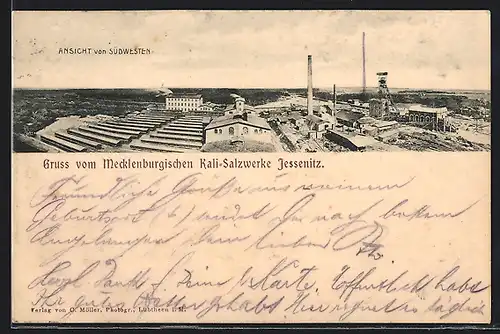 ANSICHT von SÜDWESTEN.
Gruss vom Mecklenburgischen Kali-Salzwerke Jessenitz.
Freundliche Grüße aus meinem
Geburtsort sendet Dir nach
Dein lieber
Herzl. Dank f. Deine Karte. Öffentlich habt
Ihr gutes Wetter gehabt hier regnet es täglich
Verlag von O. Möller, Photogr., Lübtheen i. M.